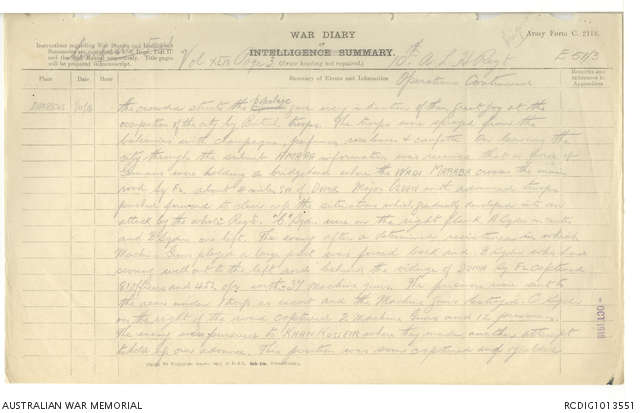 WAR DIARY
or
INTELLIGENCE SUMMARY.
(Erase heading not required)
Army Form C. 2118.
Instructions regarding War Diaries and Intelligence
Summaries are contained in F. S. Regs., Part II.
and the Staff Manual respectively. Title pages
will be prepared in manuscript.
Vol Page 3
10th A. L. H Regt
E 511/3
Place
Date
Hour
Summary of Events and Information
Remarks and
references to
Appendices
Operations Continued
DAMASCUS
the crowded streets the gave every indication of their great joy at the
occupation of the city by British troops. The troops were sprayed from the
balconies with champagne, perfume, rose leaves & confetti. On leaving the
city through the suburb information was received that a force of
Germans were holding a bridgehead where the WADI MARABA crosses the main
road by about 2 miles SW of DOUMA Major with advanced troops
pushed forward to clear up the situation which gradually developed into an
attack by the whole Regt. "C" Sqdn. were on the right flank A Sqdn in centre
and B Sqdn on left. The enemy after a determined resistance in which
Machine Guns played a large part was forced back and B Sqdn who had
swung well out to the left and behind the village of DOUMA captured
and with 37 Machine guns. The prisoners were sent to
the rear under 1 troop as escort and the Machine Guns destroyed. C Sqdn
on the right of the road captured 2 Machine Guns and 12 prisoners.
The enemy was pursued to KHAN KUSSEIR where they made another attempt
to hold up our advance. This position was soon captured and
OCT 1918
AUSTRALIAN WAR MEMORIAL
RCDIG1013551